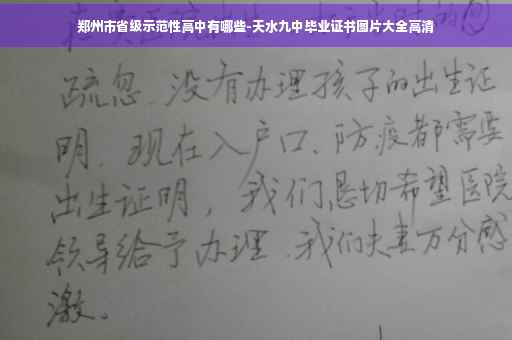 郑州市省级示范性高中有哪些-天水九中毕业证书图片大全高清
疏忽、没有办理孩子的出生证
明、现在入户口、防疫都需要
出生证明，我们恳切希望医院
领导给予办理、我们夫妻万分感
激。